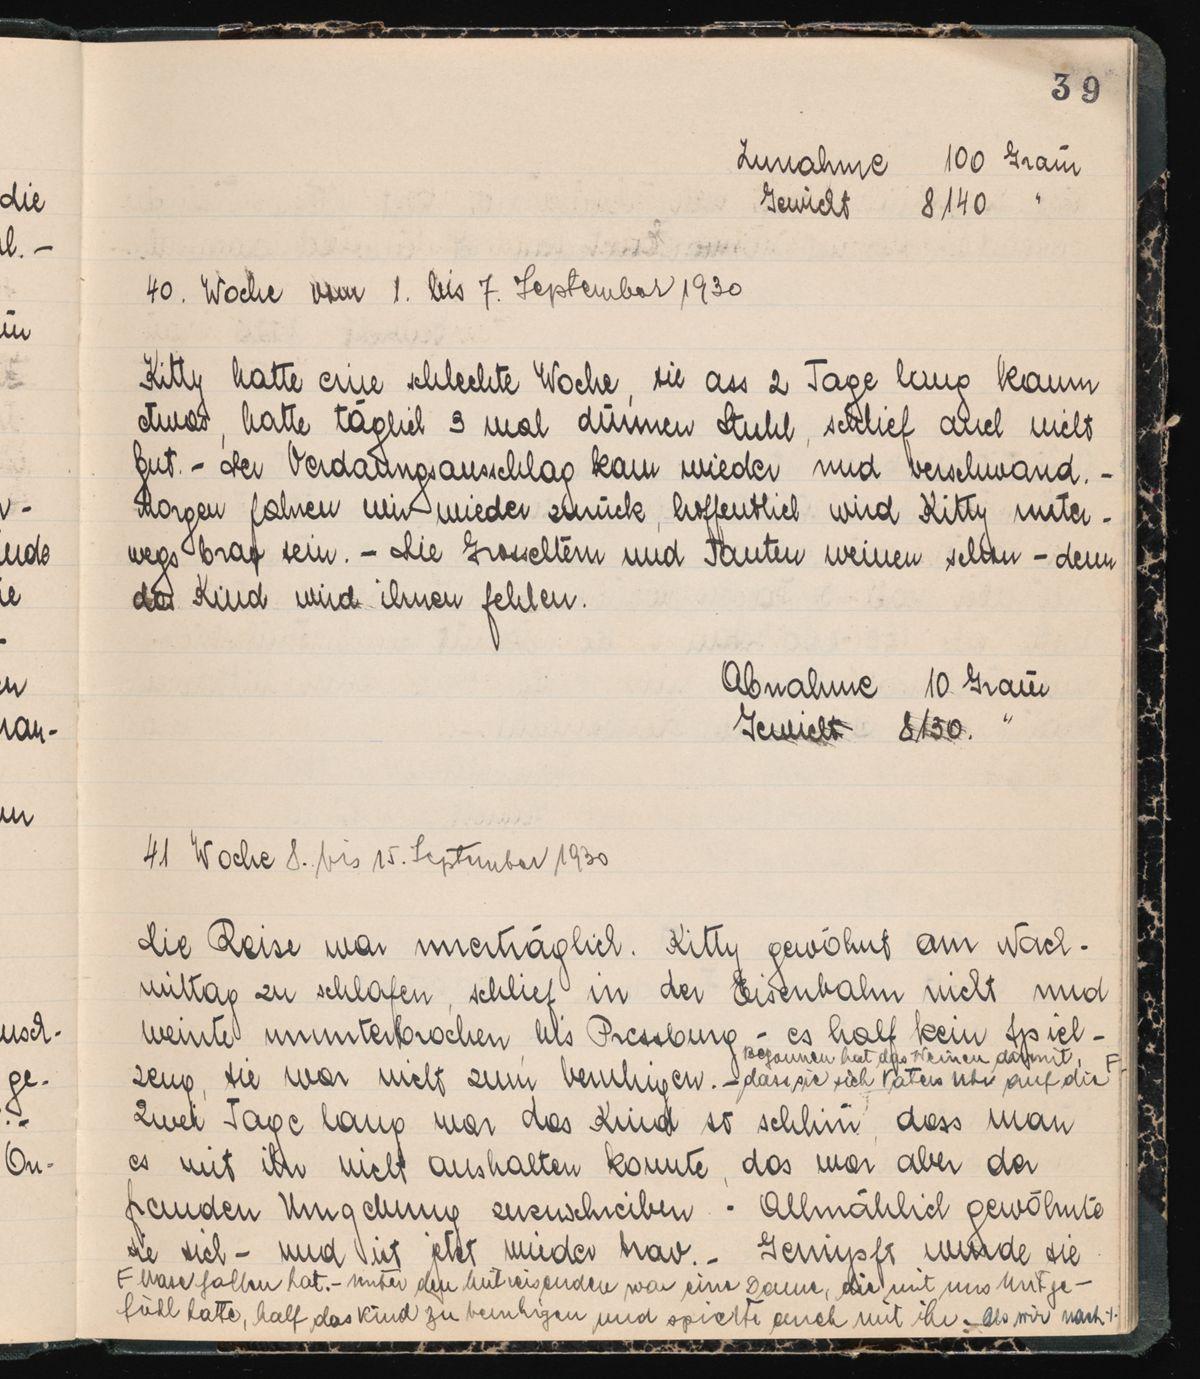 39
Zunahme 100 Gram̅
Gewicht 8140 "
40. Woche vom 1. bis 7. September 1930
Kitty hatte eine schlechte Woche, sie ass 2 Tage lang kaum
etwas, hatte täglich 3 mal dünnen Stuhl, schlief auch nicht
gut. - Der Verdauungsausschlag kam wieder und verschwand. -
Morgen fahren wir wieder zurück, hoffentlich wird Kitty unter-
wegs brav sein. - Die Grosseltern und Tanten weinen schon - denn
das Kind wird ihnen fehlen.
Abnahme 10 Gram̅
Gewicht 8130. "
41 Woche 8. bis 15. September 1930
Die Reise war unerträglich. Kitty gewöhnt am Nach-
mittag zu schlafen, schlief in der Eisenbahn nicht und
weinte ununterbrochen bis Pressburg - es half kein Spiel-
Begonnen hat das Weinen damit, F
zeug, sie war nicht zum beruhigen. - dass sie sich Vaters Uhr auf die
Zwei Tage lang war das Kind so schlim̅, dass man
es mit ihr nicht aushalten konnte, das war aber der
fremden Umgebung zuzuschreiben - Allmählich gewöhnte
sie sich - und ist jetzt wieder brav. - Geimpft wurde sie
F Nase fallen hat. - Unter den Mitreisenden war eine Dame, die mit uns Mitge-
fühl hatte, half das Kind zu beruhigen und spielte auch mit ihr. Als wir nach
die
l. -
n-
ie
-
en
usch-
ge-
On-